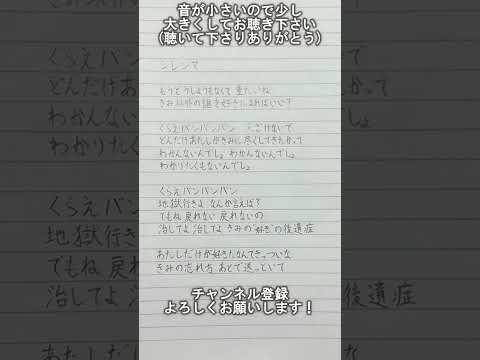 音が小さいので少し
大きくしてお聴き下さい
(聴いて下さりありがとう)
もうどうしようもなくて 重たいね
きみ以外の誰を好きになればいい?
くらえバンバンバン
どんだけあたしがきみに尽くしてきたかって
わかんないんでしょ わかんないんでしょ
わかりたくもないんでしょ
くらえバンバンバン
地獄行きよ なんか言えば?
でもね 戻れない 戻れないの
治してよ 治してよ きみの"好き"の後遺症
あたしだけが好きだなんてきっついな
きみの忘れ方 あとで送っといて
チャンネル登録
よろしくお願いします!